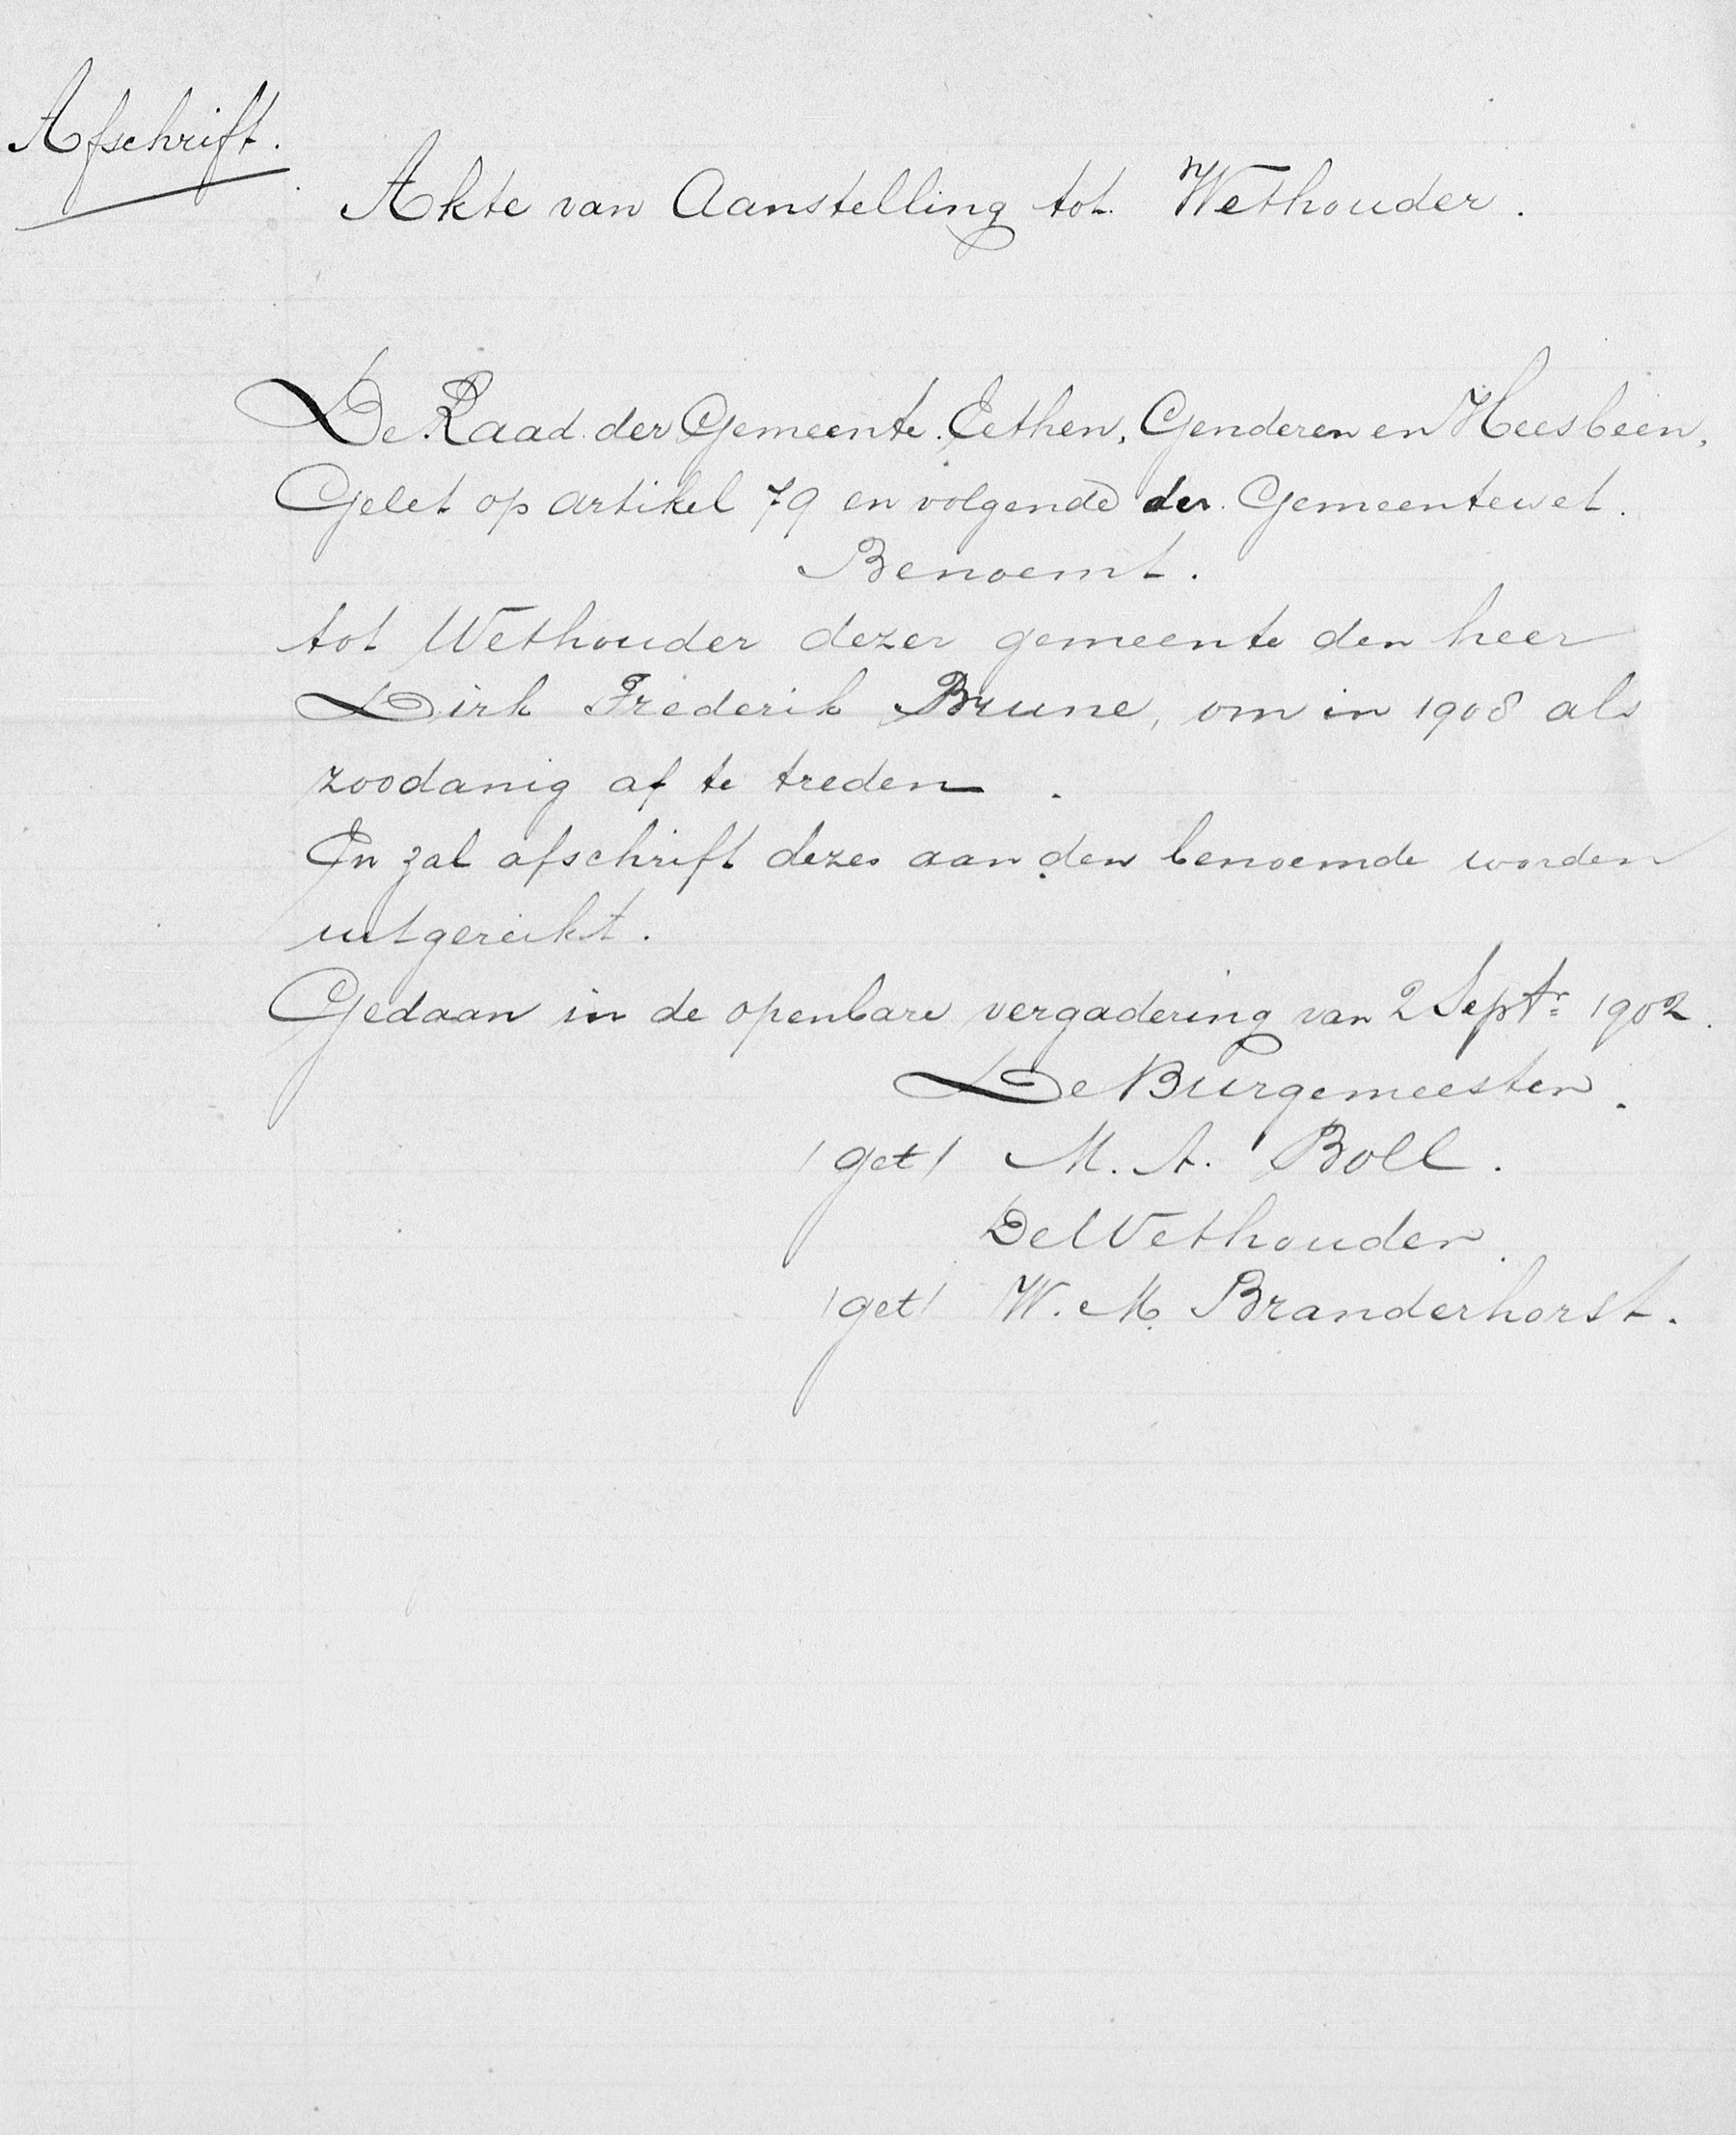 Afschrift.
Akte van Aanstelling tot Wethouder.
De Raad der Gemeente Eethen, Genderen en Heesbeen,
Gelet op artikel 79 en volgende der Gemeentewet.
Benoemt.
tot Wethouder dezer gemeente den heer
Dirk Frederik Brune, om in 1908 als
zoodanig af te treden.
En zal afschrift dezes aan den benoemde worden
uitgereikt.
Gedaan in de openbare vergadering van 2 Septr. 1902.
De Burgemeester.
/get/ M. A. Boll.
De Wethouder.
/get/ W. M. Branderhorst.